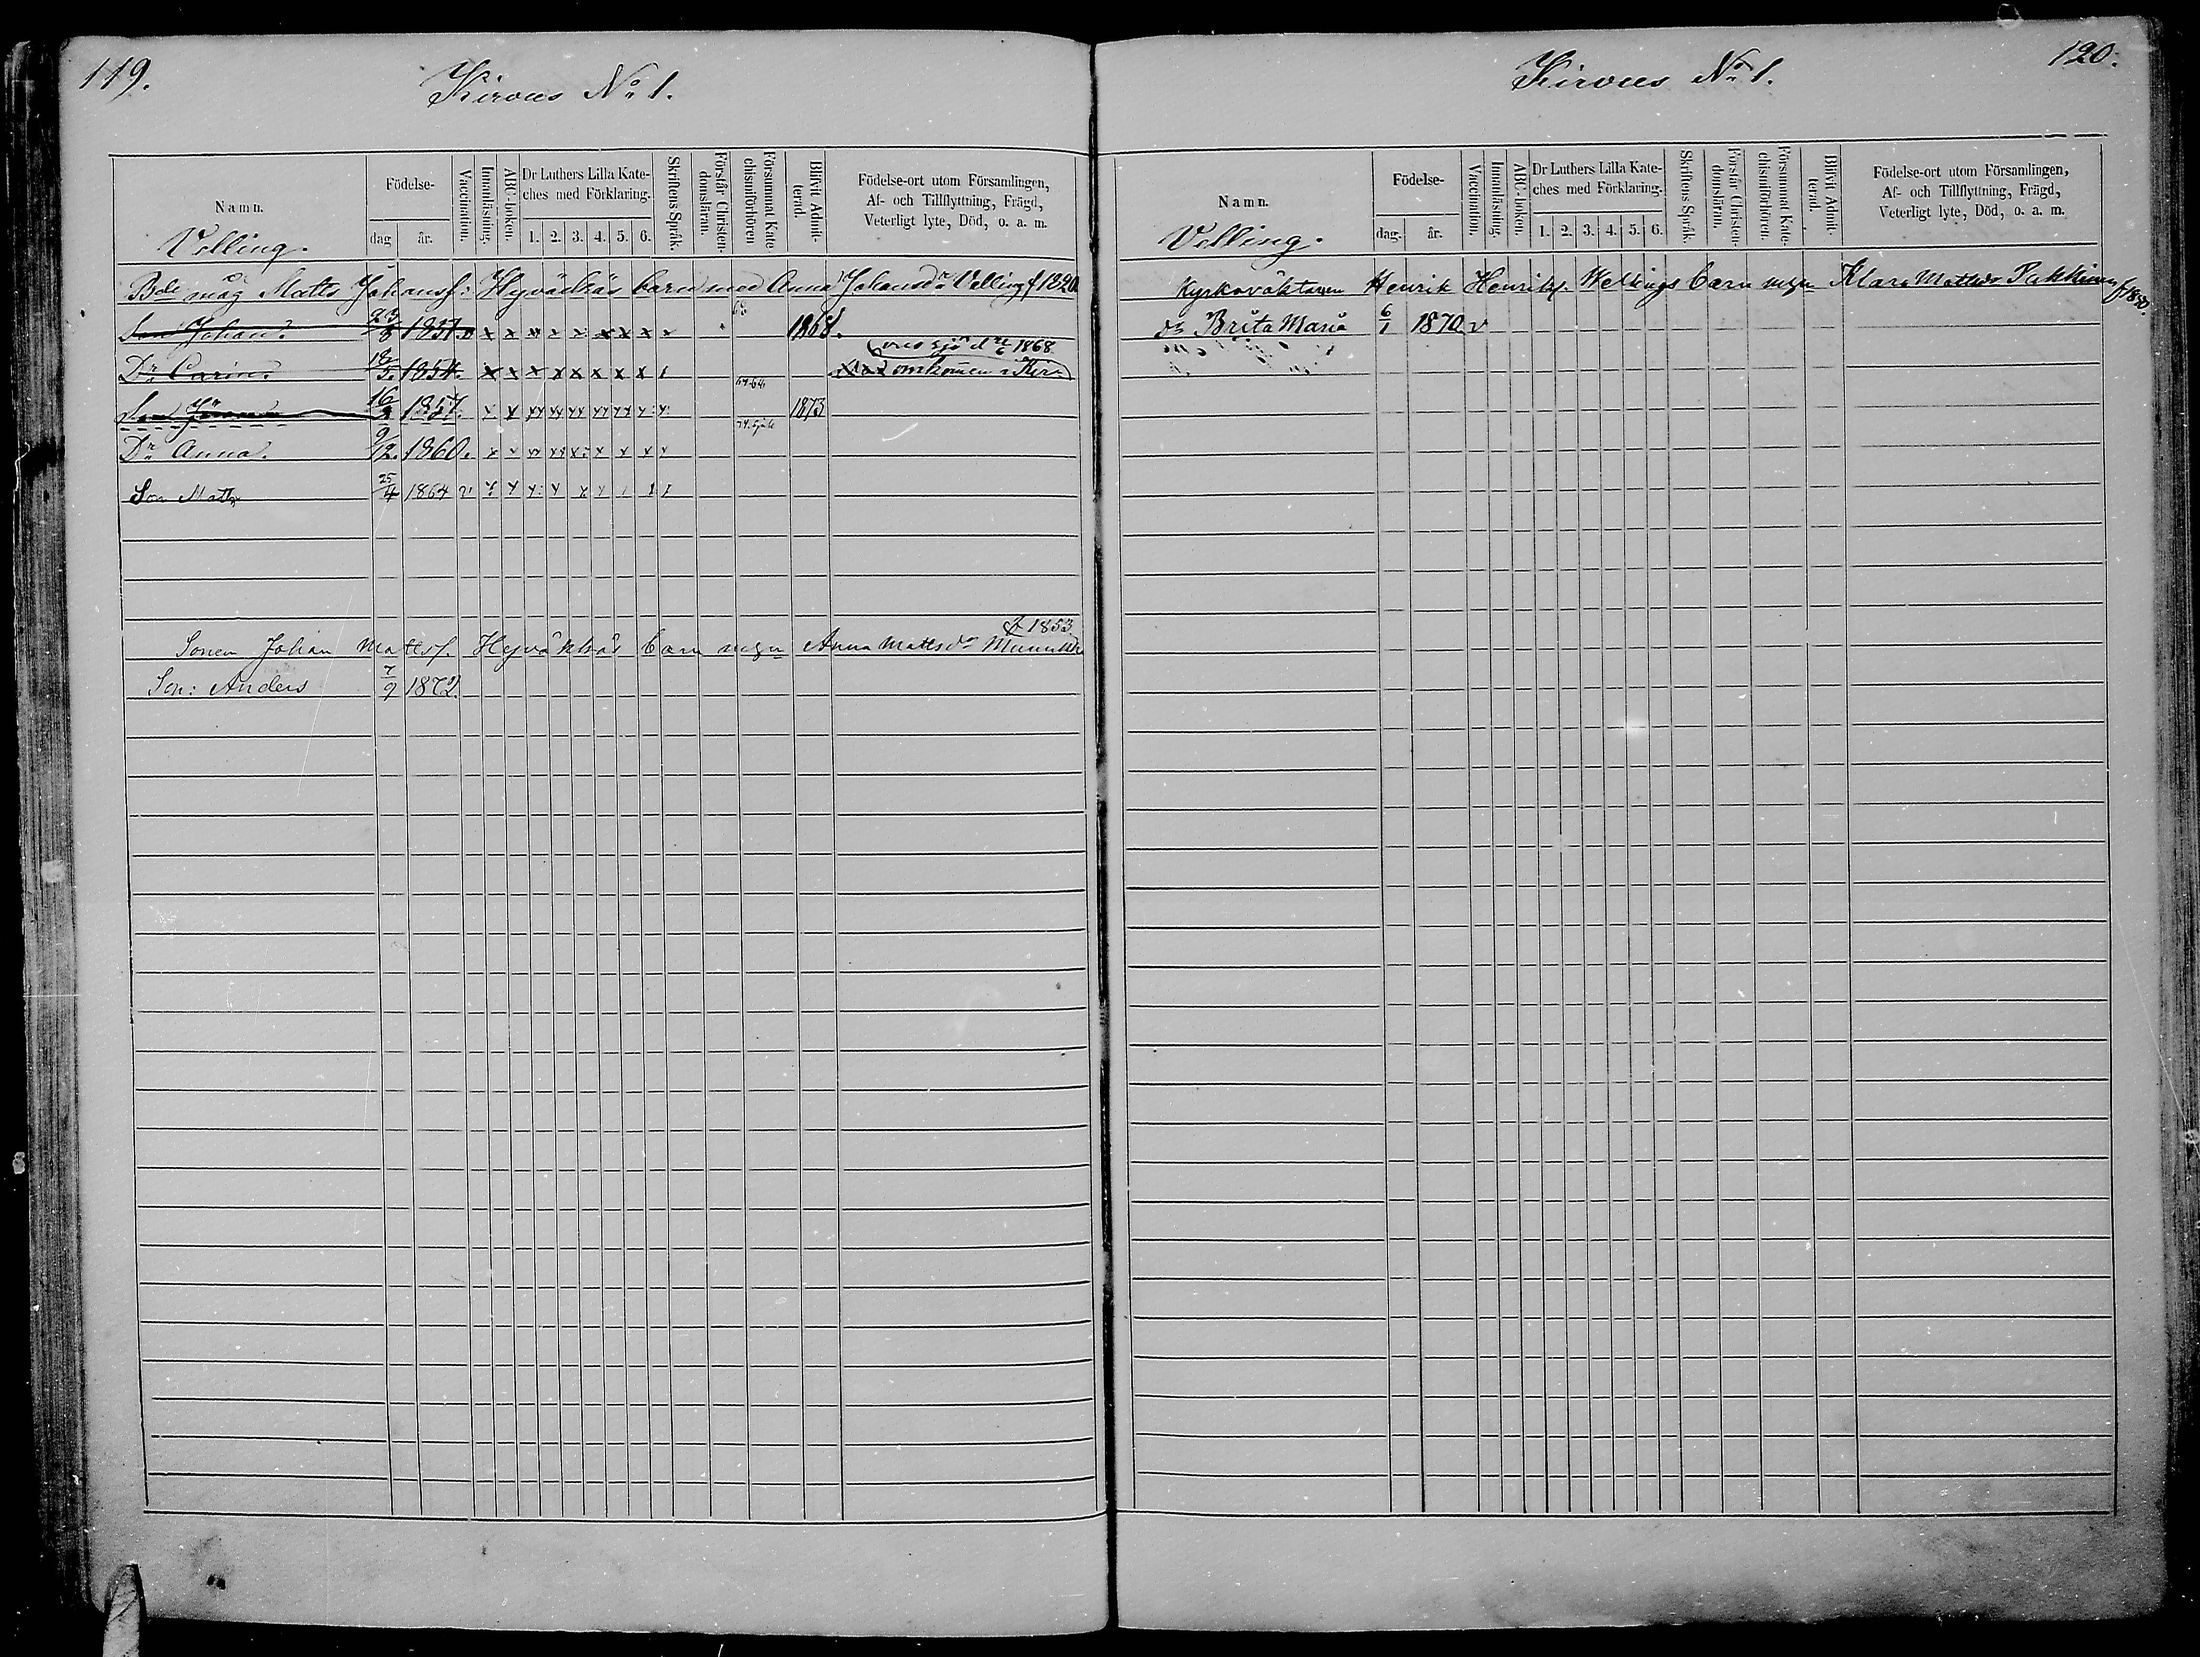 119.
Kirvus No 1.
Namn.
Födelse-
dag
år.
Vaccination.
Innanläsning.
ABC-boken.
Dr Luthers Lilla Kate-
ches med Förklaring.
1. 2. 3. 4. 5. 6.
Skriftens Språk.
Förstår Christen-
domsläran.
Försummat Kate-
chismiförhören
Blifvit Admit-
terad.
Födelse-ort utom Församlingen,
Af- och Tillflyttning, Frägd,
Veterligt lyte, Död, o. a. m.
Velling.
måg Matts Johansf: Hyväkkäs barn med Anna Johansdr Velling f 1820
Son Johan. 23/8 1851. v x x x x x x x x x 1868.
sjö d 21/6 1868
Dr Carin. 18/5. 1854. x x x x x x x x omkommen i
64-64
Son 16/8 1857. 1873
Dr Anna. 9/12. 1860.
Son Matts 25/4 1864 v
f 1853
Sonen Johan Mattsf. Hyväkkäs barn m. Anna Mattsdr
Son: Anders 7/9 1872
120.
Kirvus No 1.
Namn.
Födelse-
dag.
år.
Vaccination.
Innanläsning.
ABC-boken.
Dr Luthers Lilla Kate-
ches med Förklaring.
1. 2. 3. 4. 5. 6.
Skriftens Språk.
Förstår Christen-
domsläran.
Försummat Kate-
chismiförhören.
Blifvit Admit-
terad.
Födelse-ort utom Församlingen,
Af- och Tillflyttning, Frägd,
Veterligt lyte, Död, o. a. m.
Velling.
Kyrkovaktaren Henrik Henriksf. Wellings barn Klara Mattsdr Pukkinen f 1850.
dr Brita Maria 6/1 1870 v